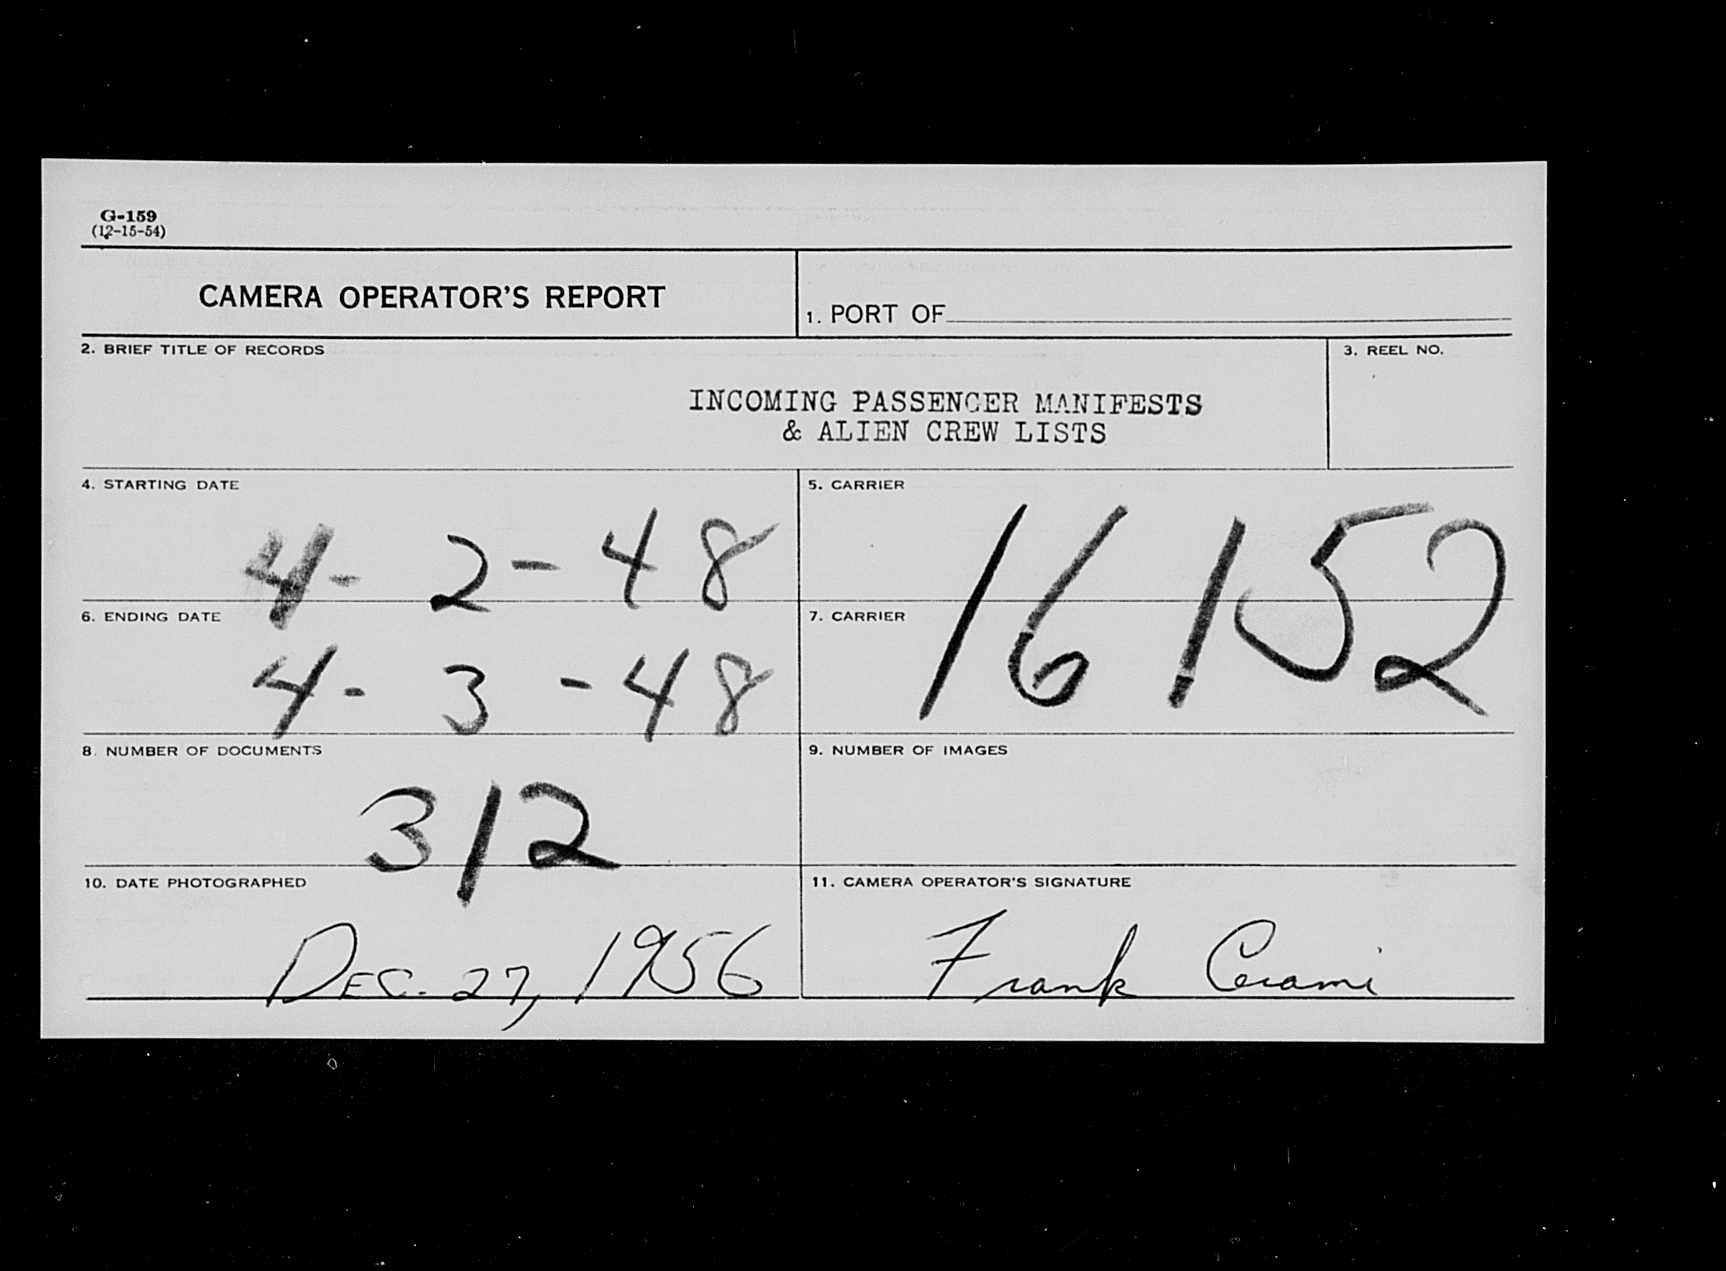 G-159
(12-15-54)
CAMERA OPERATOR'S REPORT
1. PORT OF
2. BRIEF TITLE OF RECORDS
3. REEL NO.
INCOMING PASSENGER MANIFESTS
& ALIEN CREW LISTS
4. STARTING DATE
4-2-48
5. CARRIER
16152
6. ENDING DATE
4-3-48
7. CARRIER
8. NUMBER OF DOCUMENTS
312
9. NUMBER OF IMAGES
10. DATE PHOTOGRAPHED
DEC. 27, 1956
11. CAMERA OPERATOR'S SIGNATURE
Frank Cerami